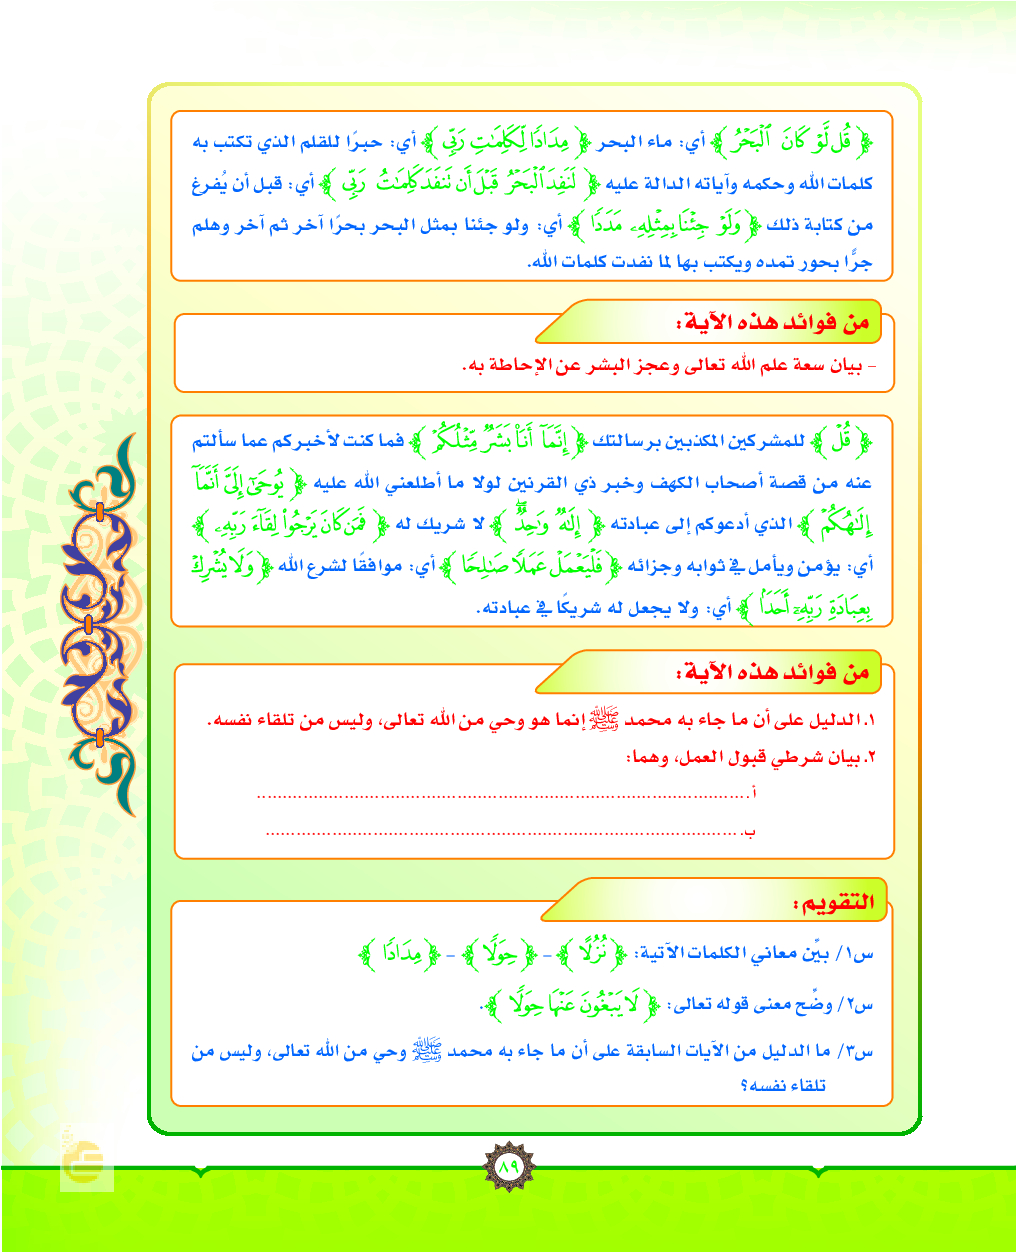 ﴿ قُل لَّوْ كَانَ ٱلْبَحْرُ ﴾ أي: ماء البحر ﴿ مِدَادًا لِّكَلِمَٰتِ رَبِّي ﴾ أي: حبرًا للقلم الذي تكتب به
كلمات الله وحكمه وآياته الدالة عليه ﴿ لَنَفِدَ ٱلْبَحْرُ قَبْلَ أَن تَنفَدَ كَلِمَٰتُ رَبِّي ﴾ أي: قبل أن يُفرغ
من كتابة ذلك ﴿ وَلَوْ جِئْنَا بِمِثْلِهِۦ مَدَدًا ﴾ أي: ولو جئنا بمثل البحر بحرًا آخر ثم آخر وهلم
جرًّا بحور تمده ويكتب بها لما نفدت كلمات الله.
من فوائد هذه الآية:
- بيان سعة علم الله تعالى وعجز البشر عن الإحاطة به.
﴿ قُلْ ﴾ للمشركين المكذبين برسالتك ﴿ إِنَّمَآ أَنَا۠ بَشَرٌ مِّثْلُكُمْ ﴾ فما كنت لأخبركم عما سألتم
عنه من قصة أصحاب الكهف وخبر ذي القرنين لولا ما أطلعني الله عليه ﴿ يُوحَىٰٓ إِلَىَّ أَنَّمَآ
إِلَٰهُكُمْ ﴾ الذي أدعوكم إلى عبادته ﴿ إِلَٰهٌ وَٰحِدٌۖ ﴾ لا شريك له ﴿ فَمَن كَانَ يَرْجُوا۟ لِقَآءَ رَبِّهِۦ ﴾
أي: يؤمن ويأمل في ثوابه وجزائه ﴿ فَلْيَعْمَلْ عَمَلًا صَٰلِحًا ﴾ أي: موافقًا لشرع الله ﴿ وَلَا يُشْرِكْ
بِعِبَادَةِ رَبِّهِۦٓ أَحَدًۢا ﴾ أي: ولا يجعل له شريكًا في عبادته.
من فوائد هذه الآية:
١. الدليل على أن ما جاء به محمد ﷺ إنما هو وحي من الله تعالى، وليس من تلقاء نفسه.
٢. بيان شرطي قبول العمل، وهما:
أ. ................................................................................
ب. ................................................................................
التقويم:
س١/ بيِّن معاني الكلمات الآتية: ﴿ نُزُلًا ﴾ - ﴿ حِوَلًا ﴾ - ﴿ مِدَادًا ﴾
س٢/ وضِّح معنى قوله تعالى: ﴿ لَا يَبْغُونَ عَنْهَا حِوَلًا ﴾.
س٣/ ما الدليل من الآيات السابقة على أن ما جاء به محمد ﷺ وحي من الله تعالى، وليس من
تلقاء نفسه؟
٨٩